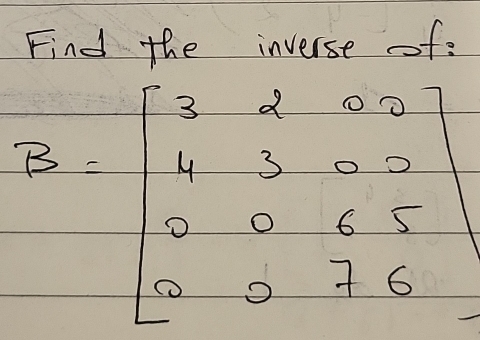 Find the inverse of:
3 2 0 0
B = 4 3 0 0
0 0 6 5
0 0 7 6